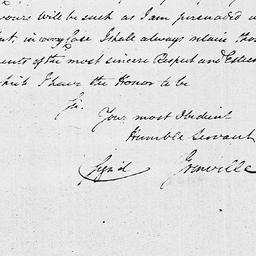 vours will be such as I am persuaded
nt. in every Case I shall always retain thos
ments of the most sincere Respect and Esteem
which I have the Honor to be
Sir.
Your most Obedient
Humble Servant
Sign'd Grenville